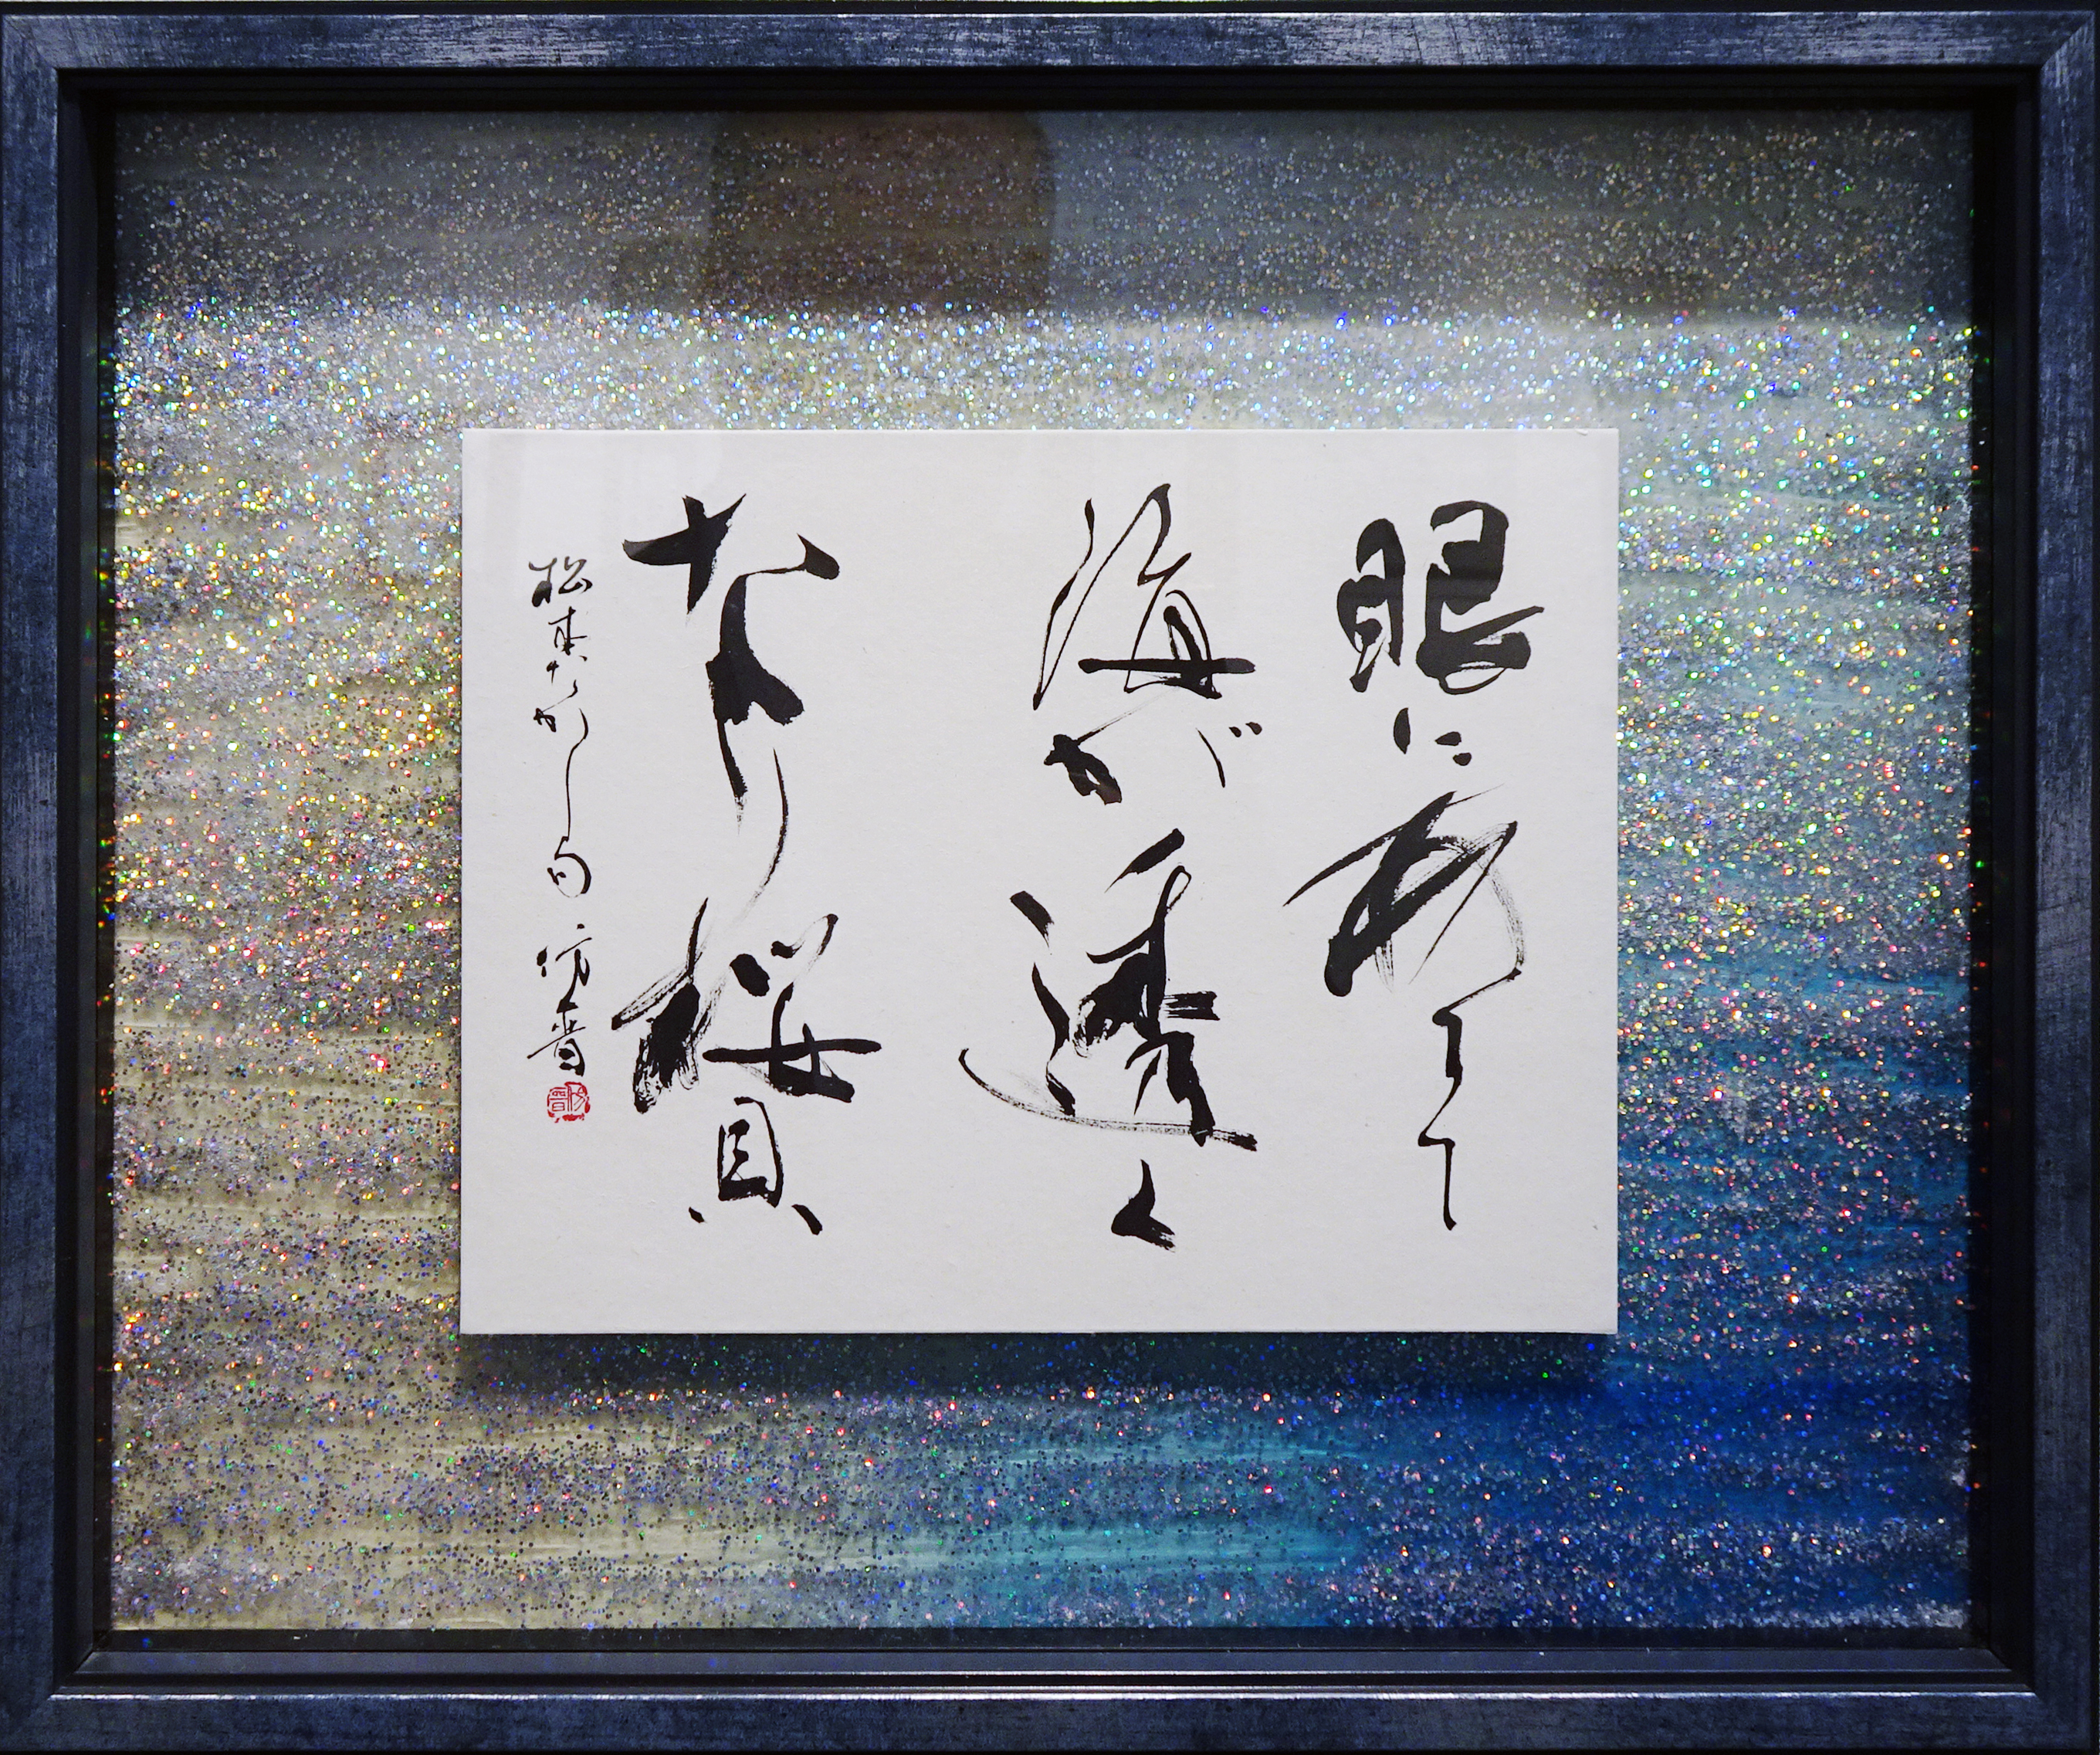 眼にあてて
海が透く
なり桜貝
松本たかし句